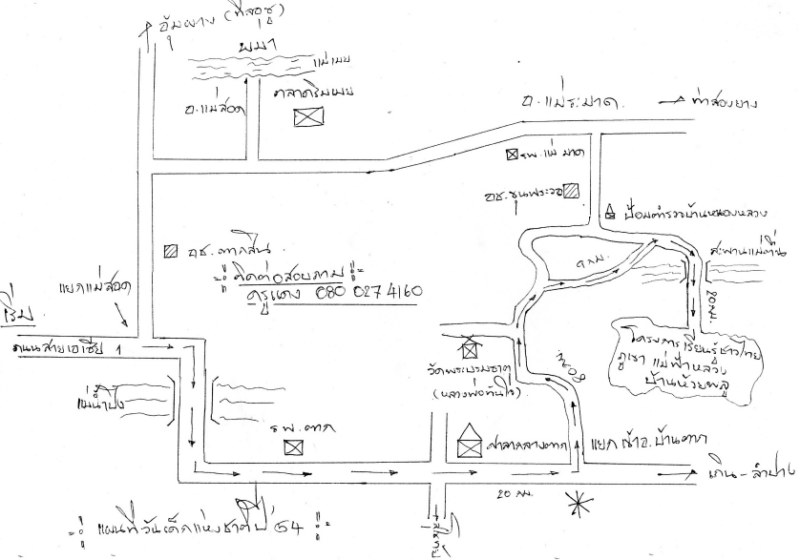 อุ้มผาง (ทีลอซู)
พม่า
แม่เมย
ตลาดริมเมย
อ.แม่สอด
อ.แม่ระมาด.
ท่าสองยาง
รพ.แม่มาด
อช.ขุนพระวอ
ป้อมตำรวจบ้านหนองหลวง
สะพานแม่ตื่น
อช.ตากสิน
ติดต่อสอบถาม
ครูแดง 080 0274160
9 กม.
20 กม.
แยกแม่สอด
เริ่ม
ถนนสายเอเซีย 1
โครงการเรียนรู้ชาวไทย
ภูเขา แม่ฟ้าหลวง
บ้านห้วยพลู
วัดพระบรมธาตุ
(หลวงพ่อทันใจ)
แม่น้ำปิง
รพ.ตาก
ศาลากลางตาก
แยกเข้าอ.บ้านตาก
เถิน-ลำปาง
20 กม.
แผนที่วันเด็กแห่งชาติปี 54